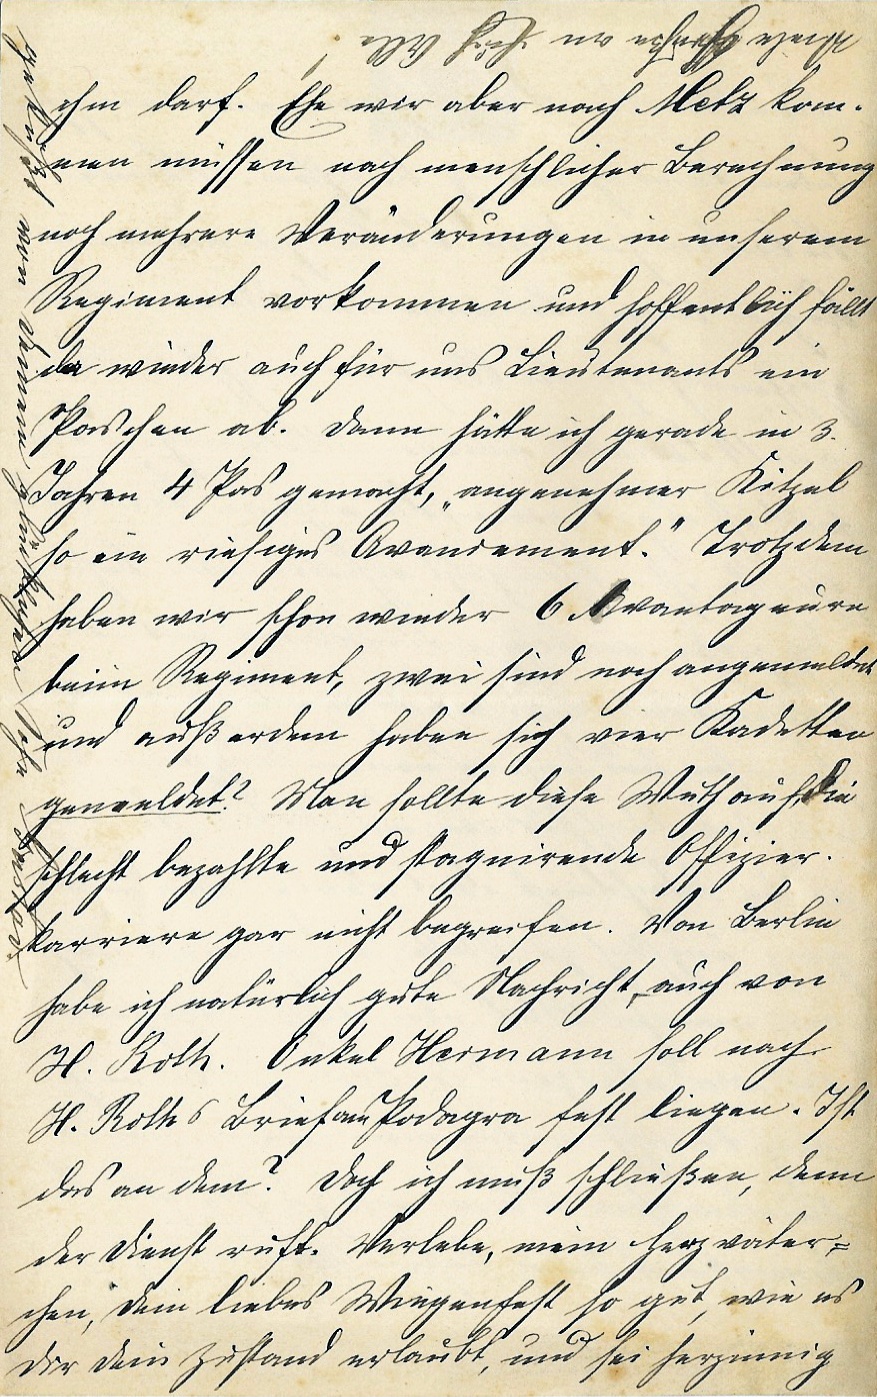 ehm darf. Ehe wir aber nach Metz kom-
men müssen nach menschlicher Berechnung
noch mehrere Veränderungen in unserem
Regiment vorkommen und hoffentlich fällt
da wieder auch für uns Lieutenants ein
Päschen ab. Dann hätte ich gerade in 3.
Jahren 4 Pas gemacht, „angenehmer Kitzel
so ein riesiges Avancement.“ Trotzdem
haben wir schon wieder 6 Avantageure
beim Regiment, zwei sind noch angemeldet
und außerdem haben sich vier Kadetten
gemeldet? Man sollte diese Wuth auf die
schlecht bezahlte und stagnirende Offizier-
karriere gar nicht begreifen. Von Berlin
habe ich natürlich gute Nachricht, auch von
H. Roth. Onkel Hermann soll nach
H. Roths Brief am Podagra fest liegen. Ist
das an dem? Doch ich muß schließen, denn
der Dienst ruft. Verlebe, mein Herzväter-
chen, dein liebes Wiegenfest so gut, wie es
dir dein Zustand erlaubt, und sei herzinnig
geküßt von deinem glücklichen Sohn
Grüße an Euch Alle